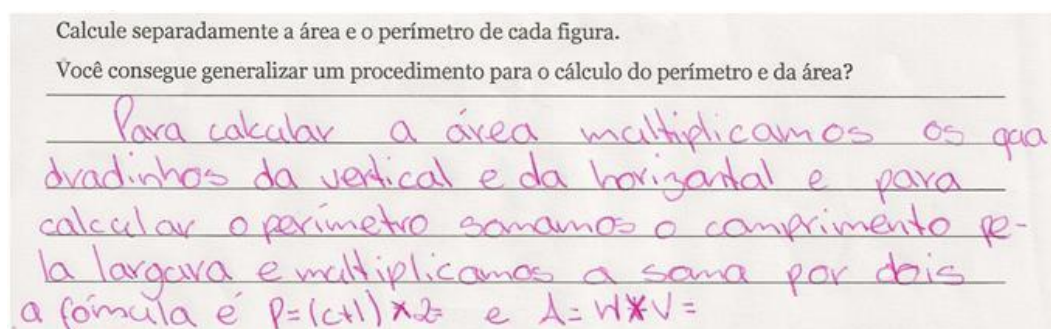 Calcule separadamente a área e o perímetro de cada figura.
Você consegue generalizar um procedimento para o cálculo do perímetro e da área?
Para calcular a área multiplicamos os qua
dradinhos da vertical e da horizontal e para
calcular o perímetro somamos o comprimento pe-
la largura e multiplicamos a soma por dois
a fómula é P=(c+l)*2= e A=H*V=